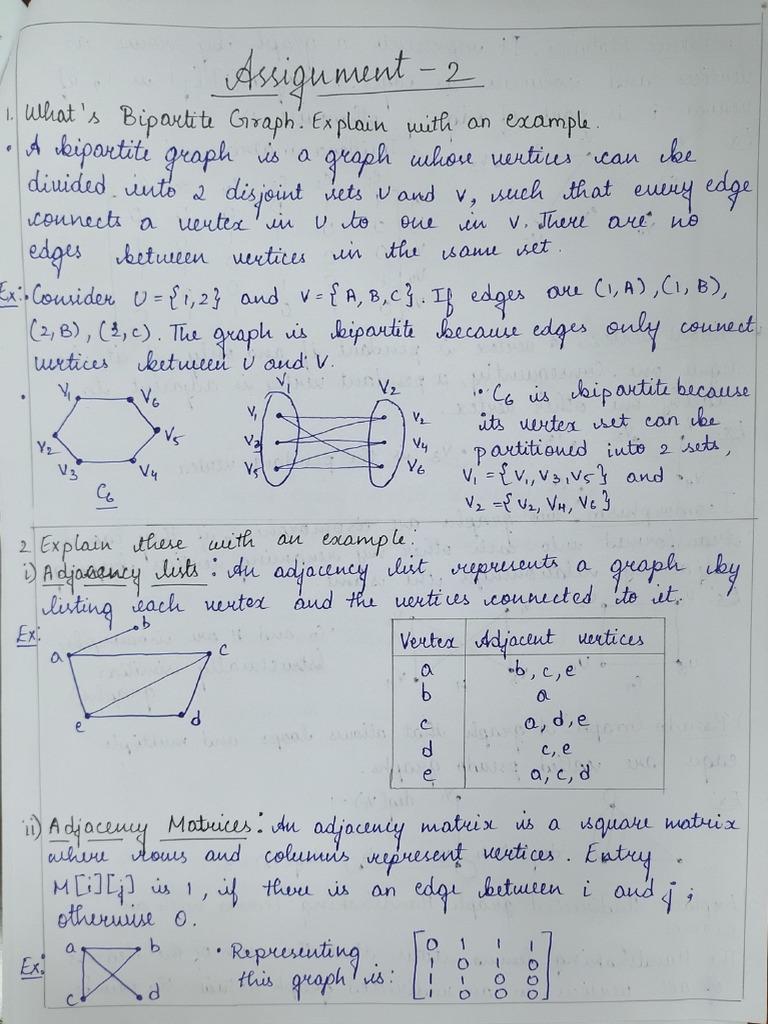 Assignment - 2
1. What's Bipartite Graph. Explain with an example.
• A bipartite graph is a graph whose vertices can be
divided into 2 disjoint sets U and V, such that every edge
connects a vertex in U to one in V. There are no
edges between vertices in the same set.
Ex:• Consider U = {1,2} and V = {A, B, C}. If edges are (1, A), (1, B),
(2, B), (2, C). The graph is bipartite because edges only connect
vertices between U and V.
V₁ V₆ V₂ V₃ V₄ V₅
C₆
V₁ V₂
V₁ V₂
V₃ V₄
V₅ V₆
∵ C₆ is bipartite because
its vertex set can be
partitioned into 2 sets,
V₁ = {V₁, V₃, V₅} and
V₂ = {V₂, V₄, V₆}
2. Explain these with an example.
i) Adjacency lists: An adjacency list represents a graph by
listing each vertex and the vertices connected to it.
Ex:
b
a c
e d
Vertex Adjacent vertices
a b, c, e
b a
c a, d, e
d c, e
e a, c, d
ii) Adjacency Matrices: An adjacency matrix is a square matrix
where rows and columns represent vertices. Entry
M[i][j] is 1, if there is an edge between i and j;
otherwise 0.
Ex:
a b
c d
• Representing
this graph is:
0 1 1 1
1 0 1 0
1 1 0 0
1 0 0 0